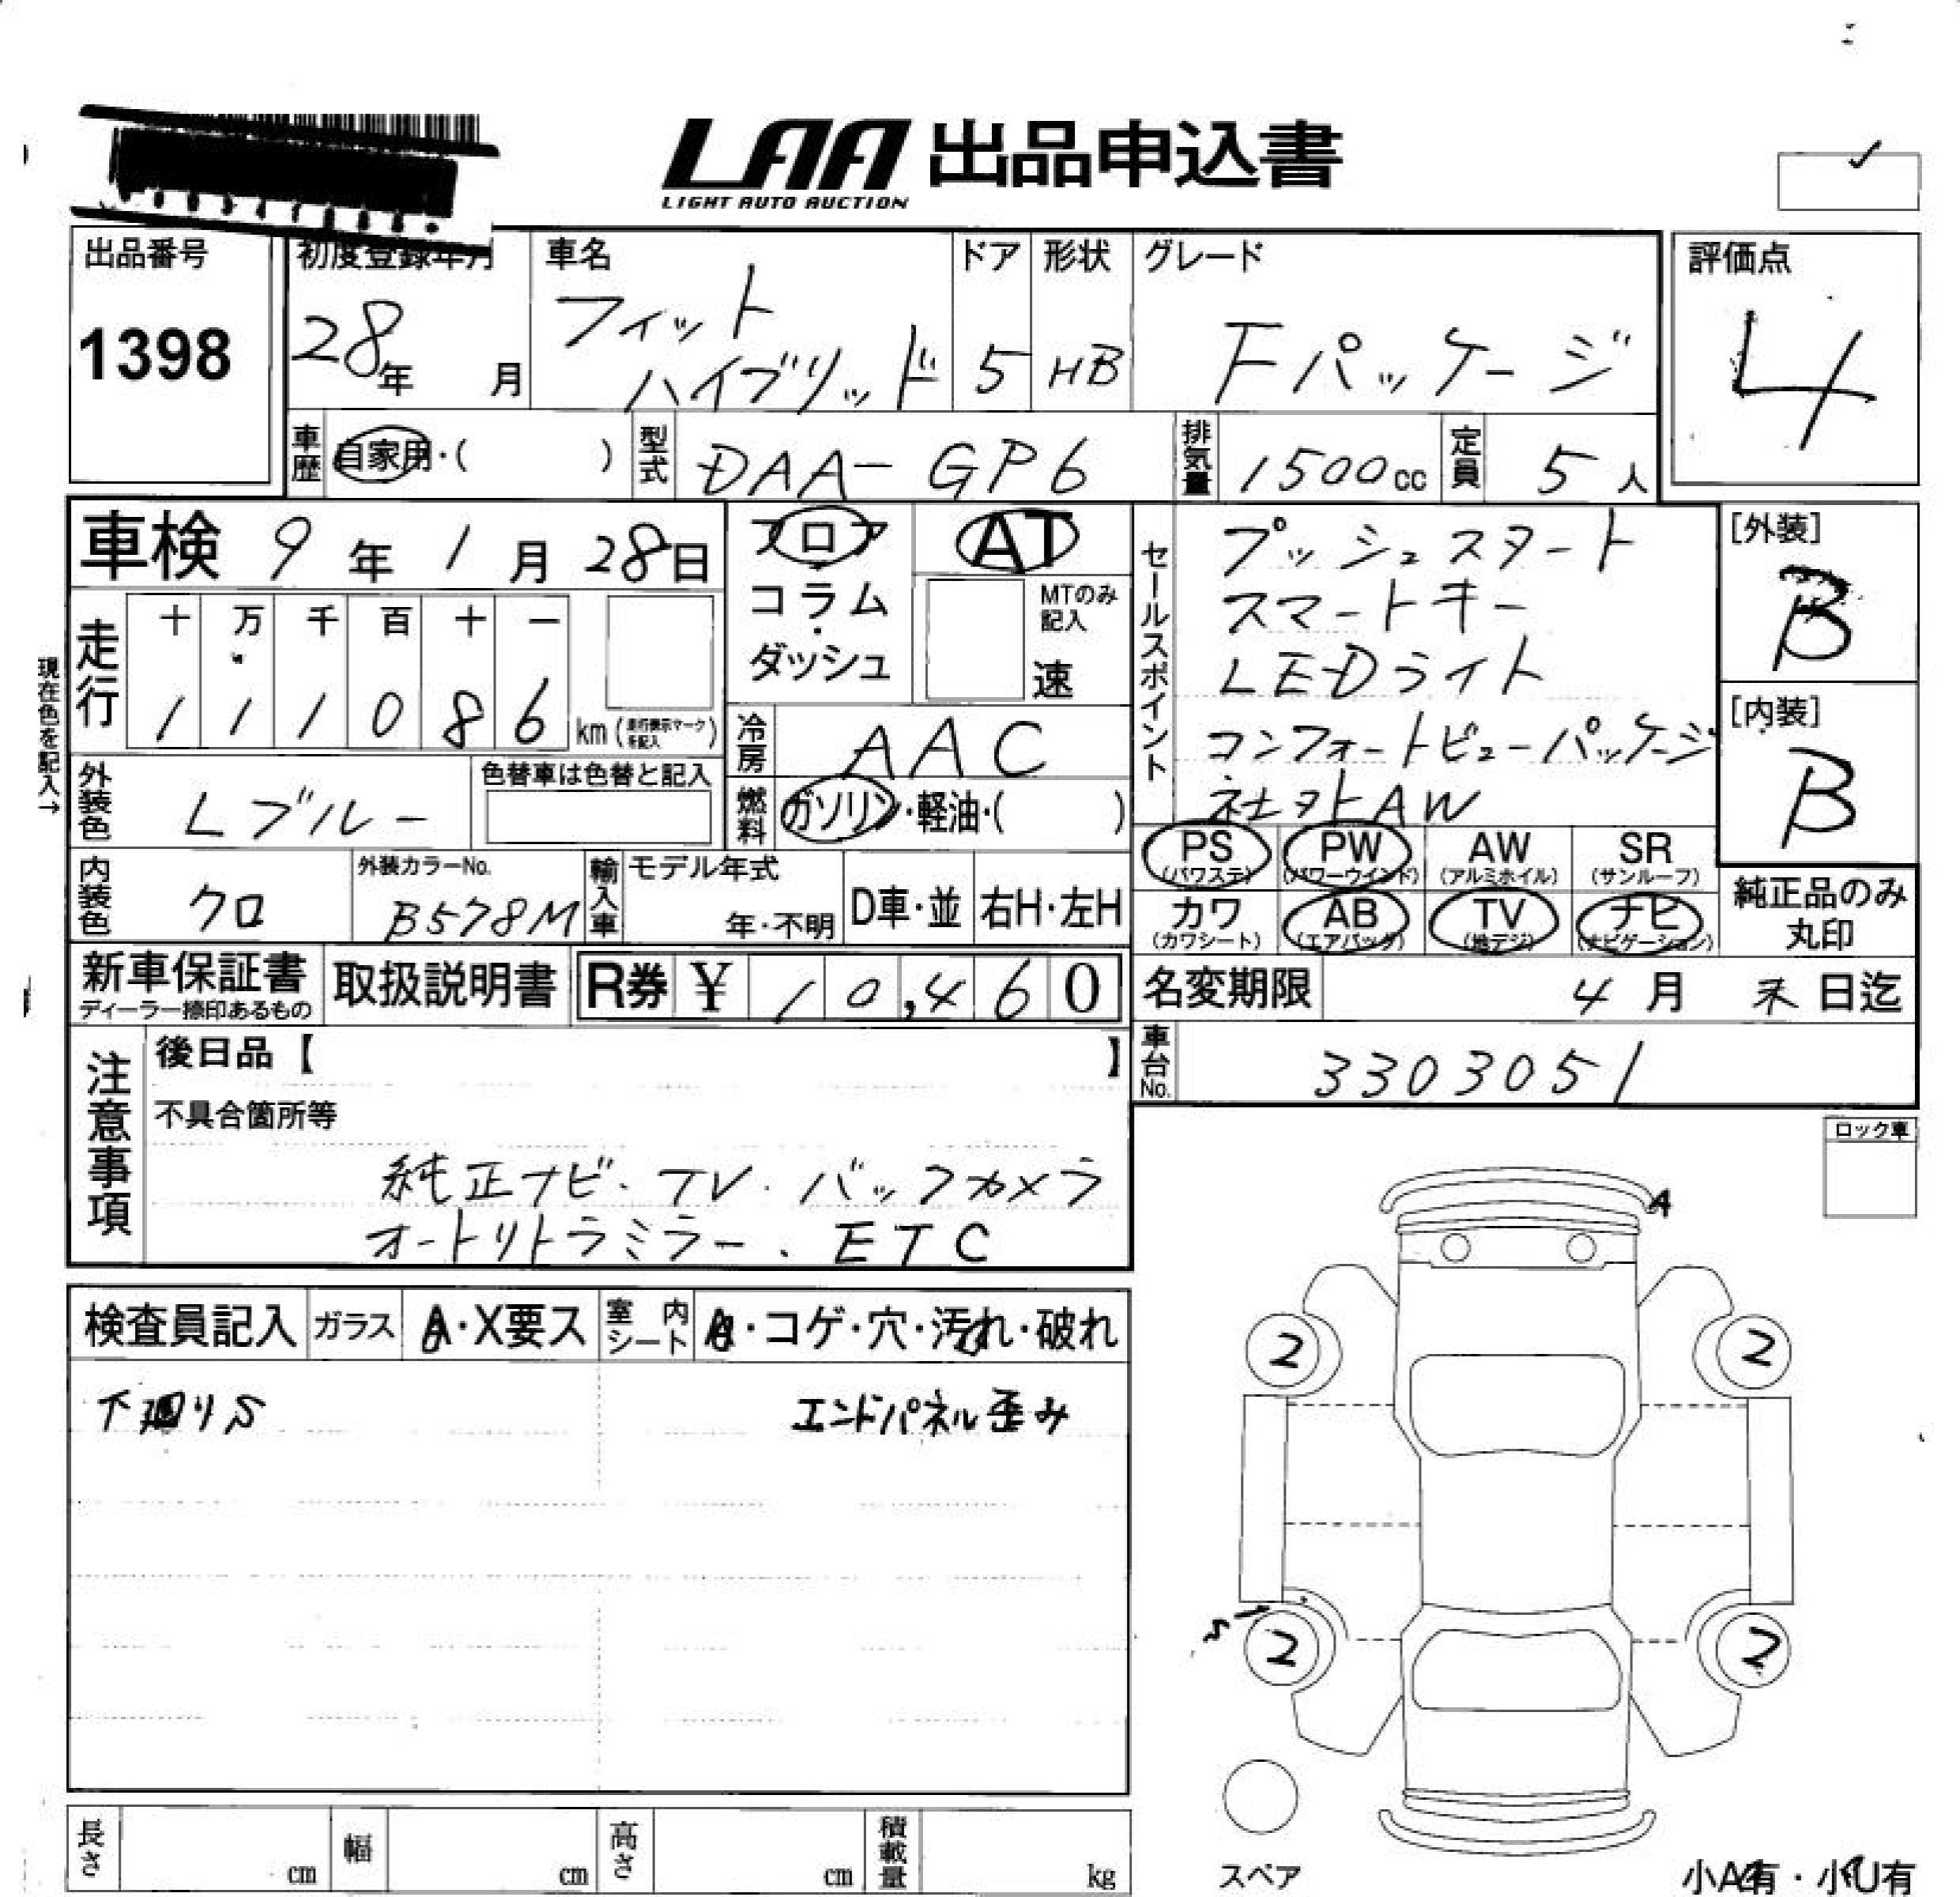 LAA 出品申込書
LIGHT AUTO AUCTION
出品番号
1398
初度登録年月
28年 月
車名
フィット
ハイブリッド
ドア
5
形状
HB
グレード
Fパッケージ
評価点
4
車歴 自家用・( )
型式 DAA-GP6
排気量 1500cc
定員 5人
車検 9年1月28日
フロア
コラム
・
ダッシュ
AT
MTのみ
記入
速
セールスポイント
プッシュスタート
スマートキー
LEDライト
コンフォートビューパッケージ
社外AW
[外装]
B
[内装]
B
現在色を記入→
走行
十 万 千 百 十 一
1 1 1 0 8 6 km (走行表示マークを記入)
冷房 AAC
外装色 Lブルー
色替車は色替と記入
燃料 ガソリン・軽油・( )
内装色 クロ
外装カラーNo.
B578M
輸入車 モデル年式
年・不明
D車・並
右H・左H
PS (パワステ)
PW (パワーウインド)
AW (アルミホイル)
SR (サンルーフ)
カワ (カワシート)
AB (エアバッグ)
TV (地デジ)
ナビ (ナビゲーション)
純正品のみ
丸印
新車保証書
ディーラー捺印あるもの
取扱説明書
R券 ¥ 10,460
名変期限 4月 末日迄
車台No. 3303051
注意事項
後日品【 】
不具合箇所等
純正ナビ・TV・バックカメラ
オートリトラミラー、ETC
ロック車
A
検査員記入 ガラス A・X要ス 室内シート ・コゲ・穴・汚れ・破れ
下廻りS
エンドパネル歪み
2
2
2
2
長さ cm
幅 cm
高さ cm
積載量 kg
スペア
小A有・小U有